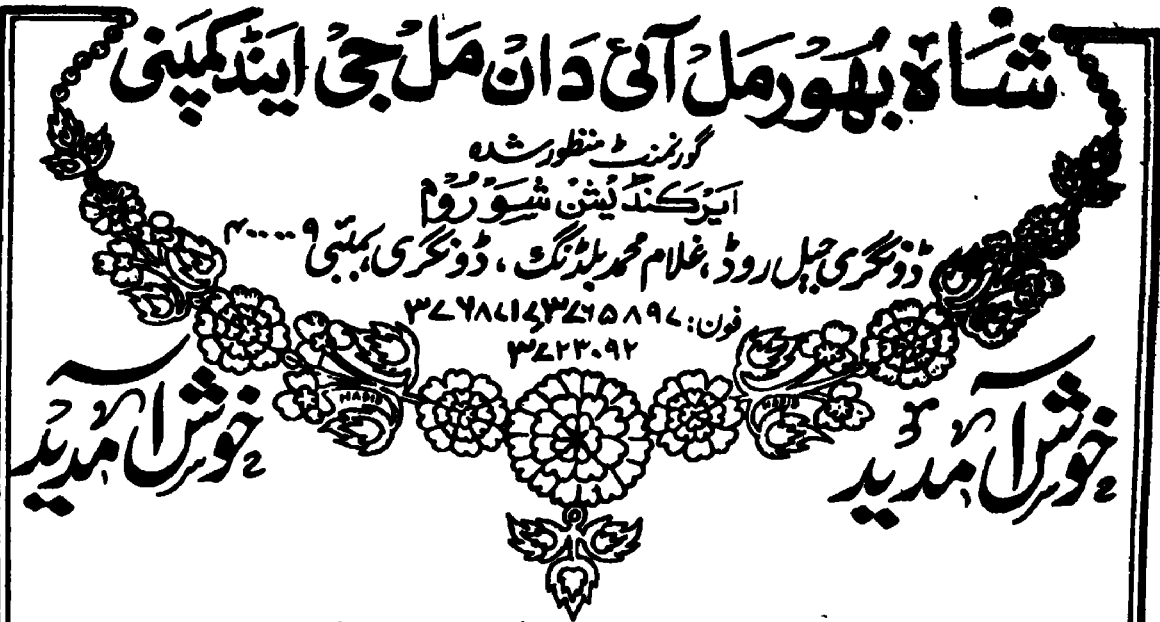 شاہ بھورمل آئی دان مل جی اینڈ کمپنی
گورنمنٹ منظور شدہ
ایرکنڈیشن شو روم
ڈونگری جیل روڈ، غلام محمد بلڈنگ، ڈونگری، بمبئی ۴۰۰۰۰۹
فون: ۳۷۶۵۸۹۷، ۳۷۶۸۷۱۷
۳۷۲۳۰۹۲
خوش آمدید
خوش آمدید
HABIB
HABIB